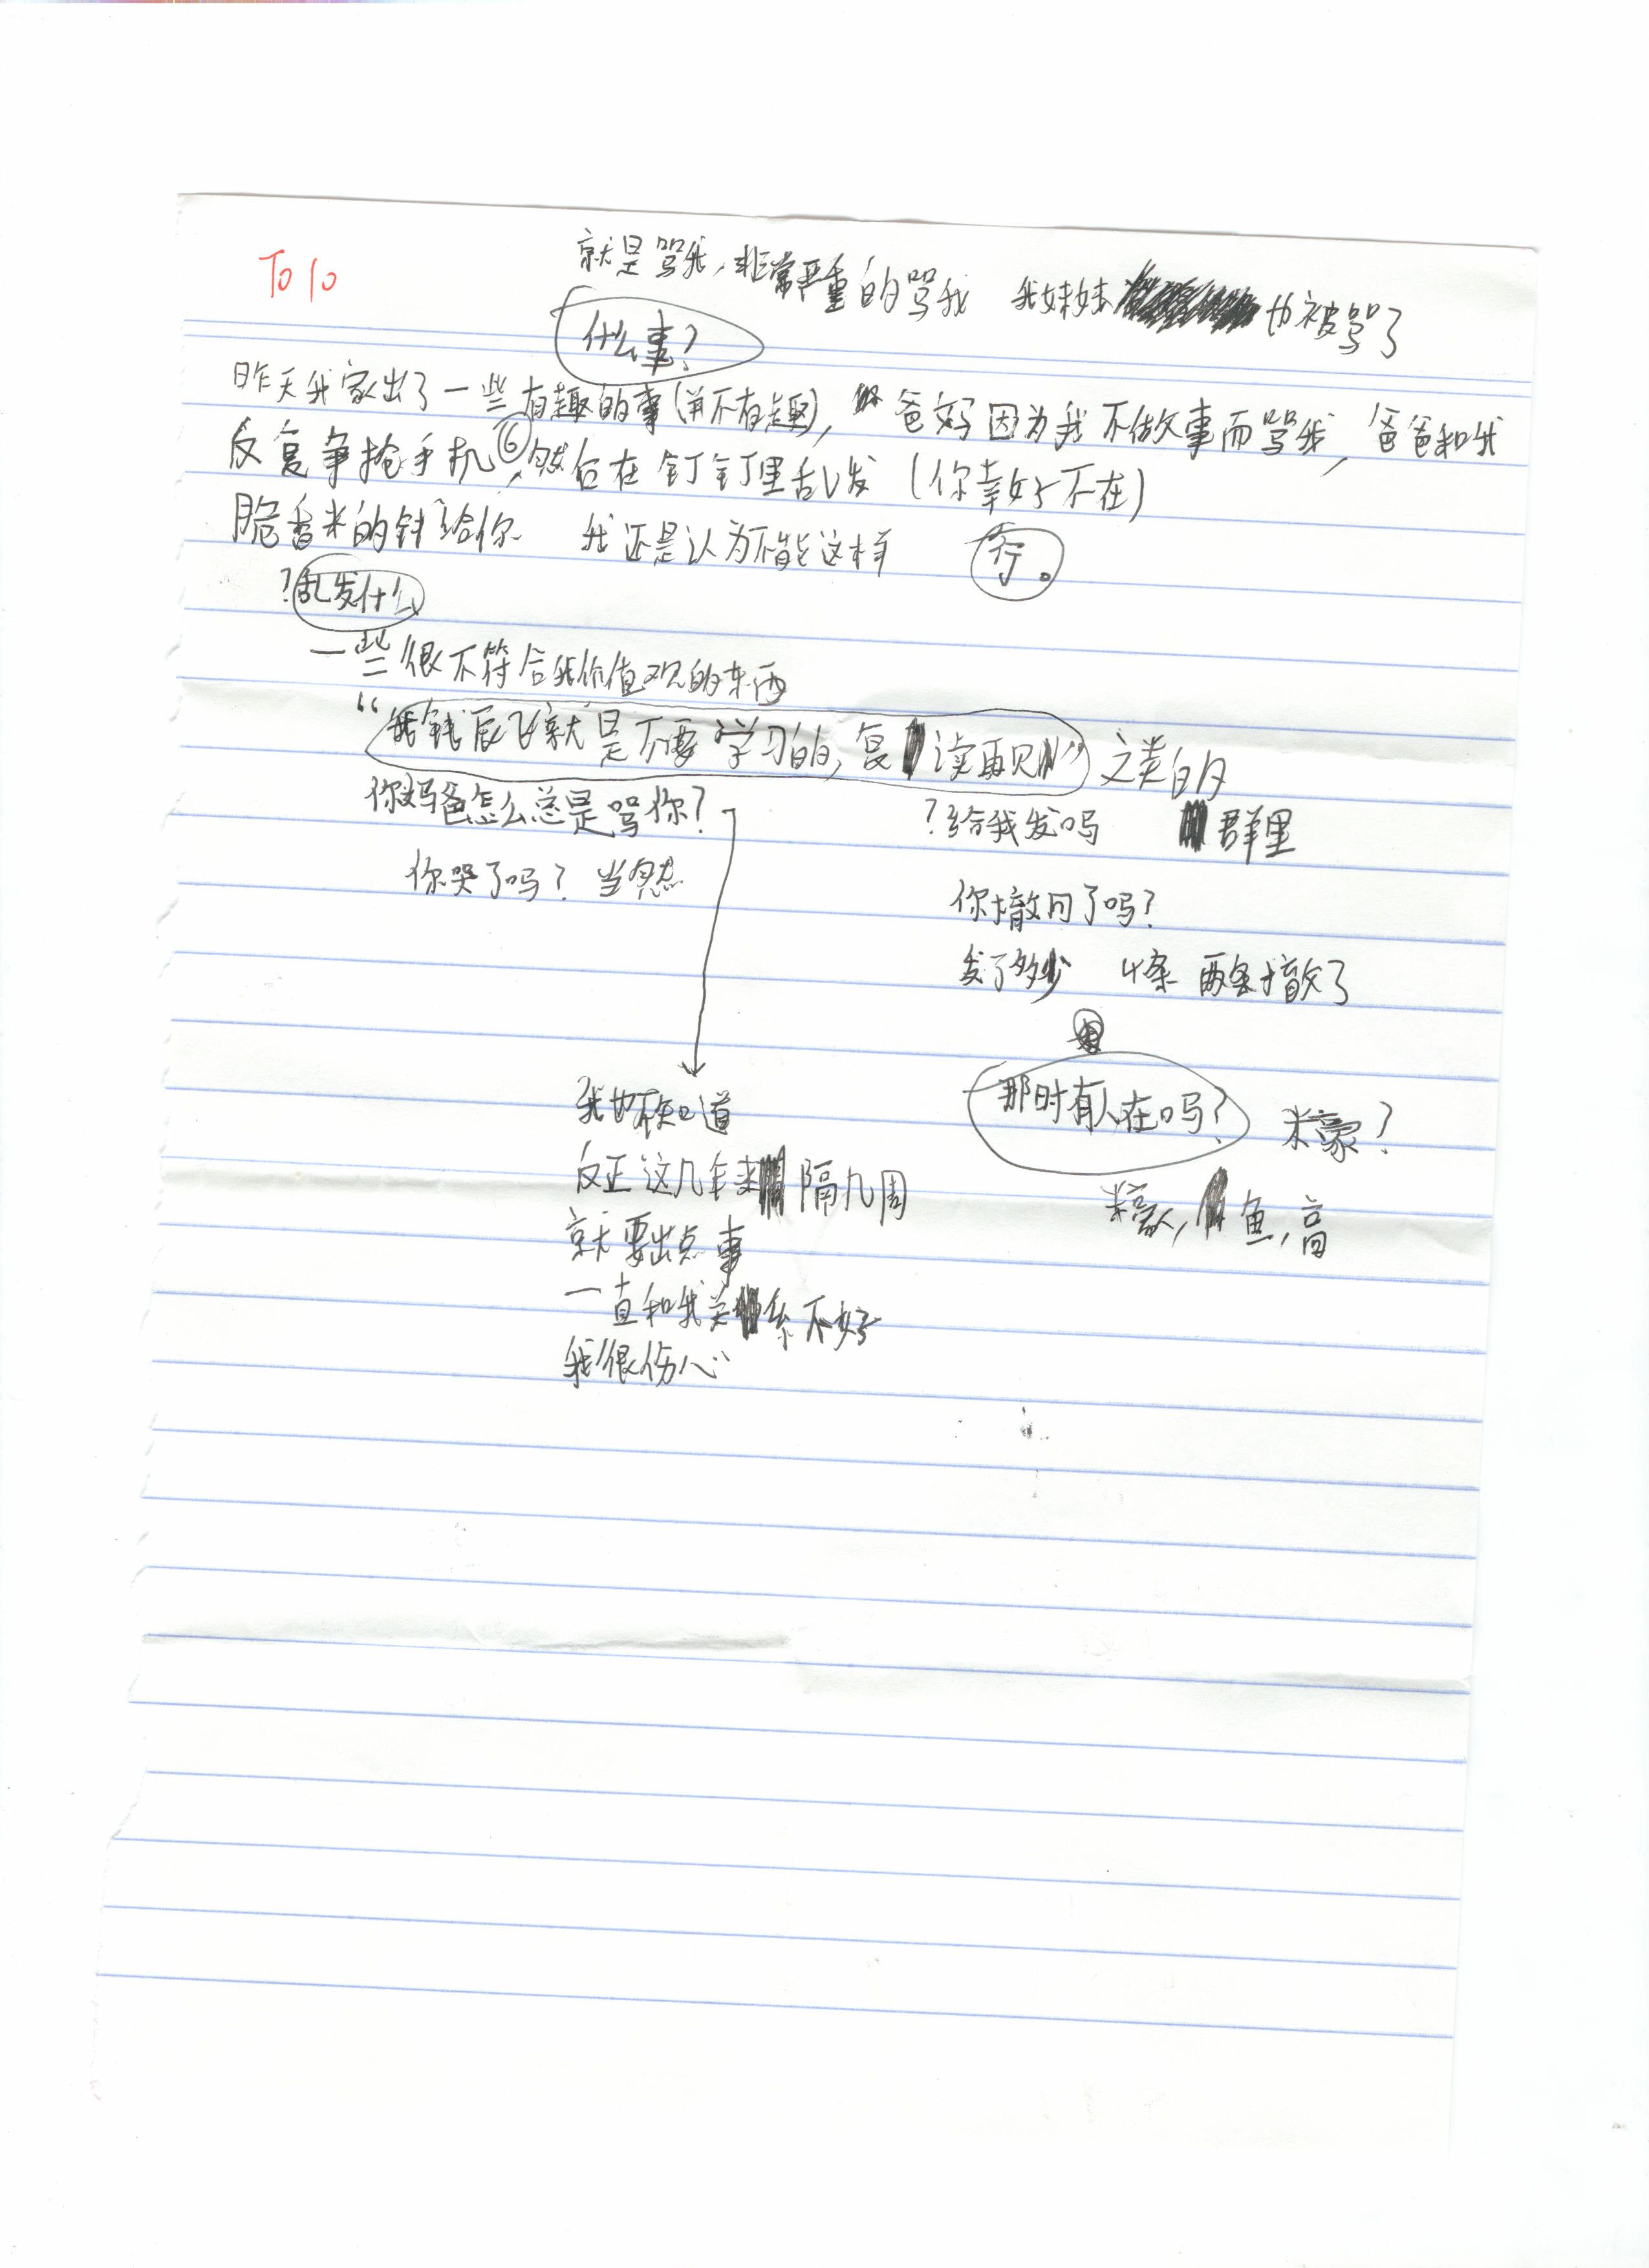 To 10
就是骂我，非常严重的骂我 我妹妹 也被骂了
什么事？
昨天我家出了一些有趣的事(并不有趣)， 爸妈因为我不做事而骂我，爸爸和我
反复争抢手机⑥，然后在钉钉里乱发 (你幸好不在)
脆香米的钱给你 我还是认为不能这样 行。
?乱发什么
一些很不符合我价值观的东西
“我钱辰飞就是不要学习的，复 读再见”之类的
你妈爸怎么总是骂你？ ?给我发吗 群里
你哭了吗？ 当然 你撤回了吗？
发了多少 4条 两条撤了
那时有人在吗？ 米豪？
我也不知道
反正这几年来 隔几周 米豪， 鱼，高
就要出点事
一直和我关系不好
我很伤心